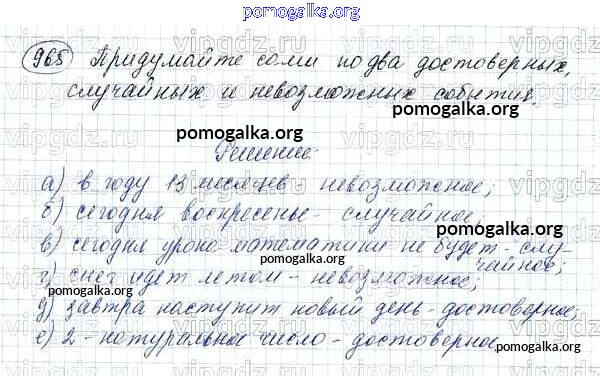 pomogalka.org
965 Придумайте сами по два достоверных,
случайных и невозможных события.
pomogalka.org
Решение:
pomogalka.org
а) в году 13 месяцев невозможное;
б) сегодня воскресенье - случайное;
pomogalka.org
в) сегодня урока математики не будет - слу-
чайное;
г) снег идет летом - невозможное;
pomogalka.org
д) завтра наступит новый день - достоверное;
pomogalka.org
е) 2 - натуральное число - достоверное
pomogalka.org